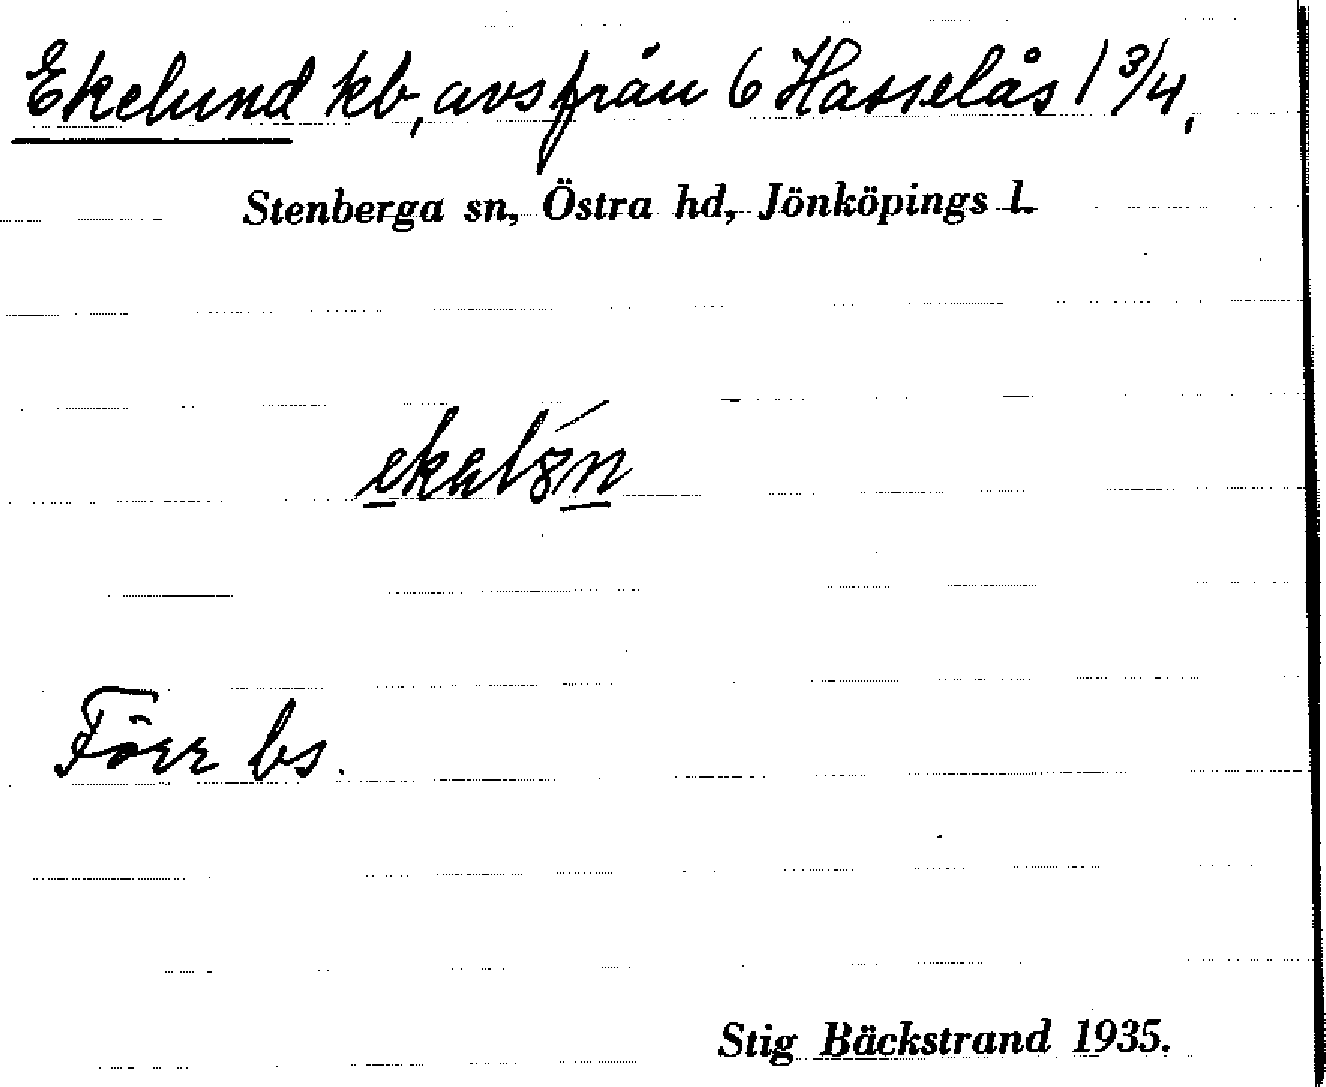 Ekelund kb, avs från 6 Hasselås 1 3/4,
Stenberga sn, Östra hd, Jönköpings l.
Förr bs.
Stig Bäckstrand 1935.